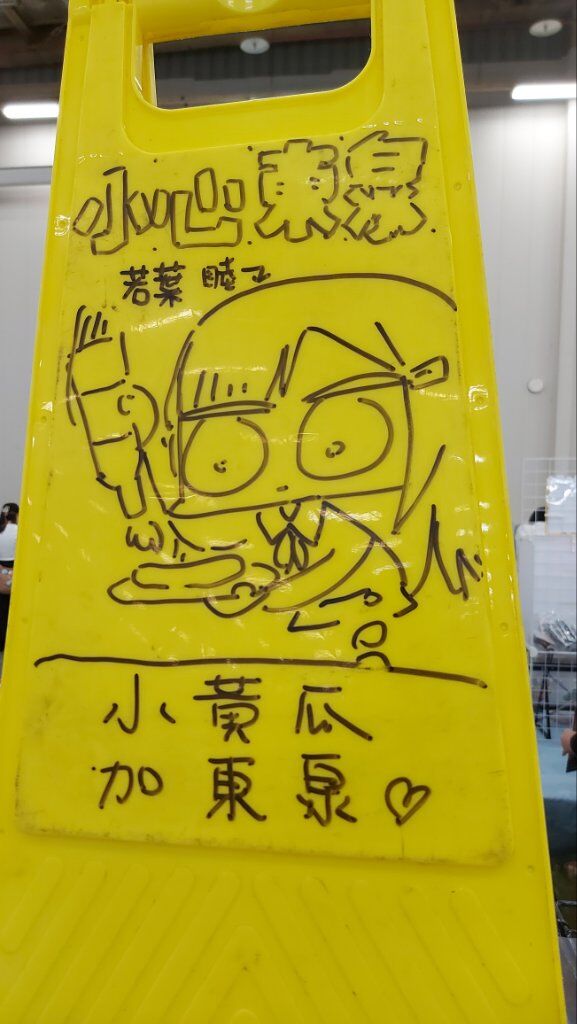 小心東泉
若葉 睦
小黃瓜
加東泉♡